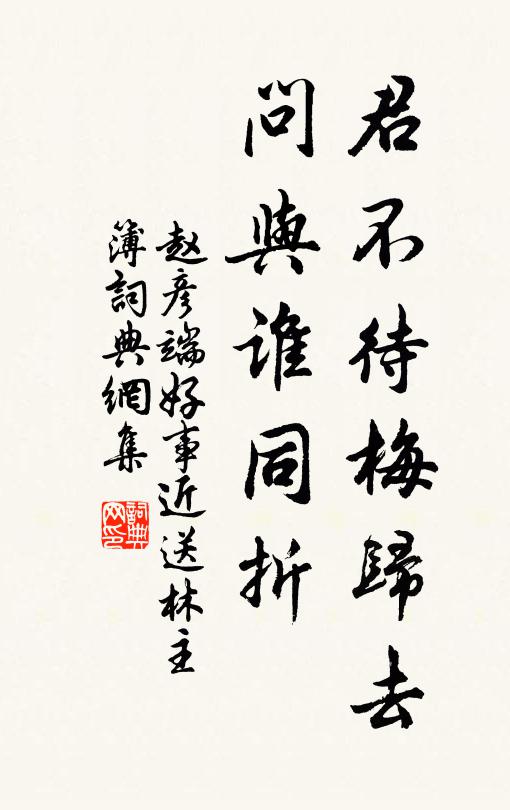 君不待梅歸去
問與誰同折
赵彥端好事近送林主
簿詞典網集
詞典网印